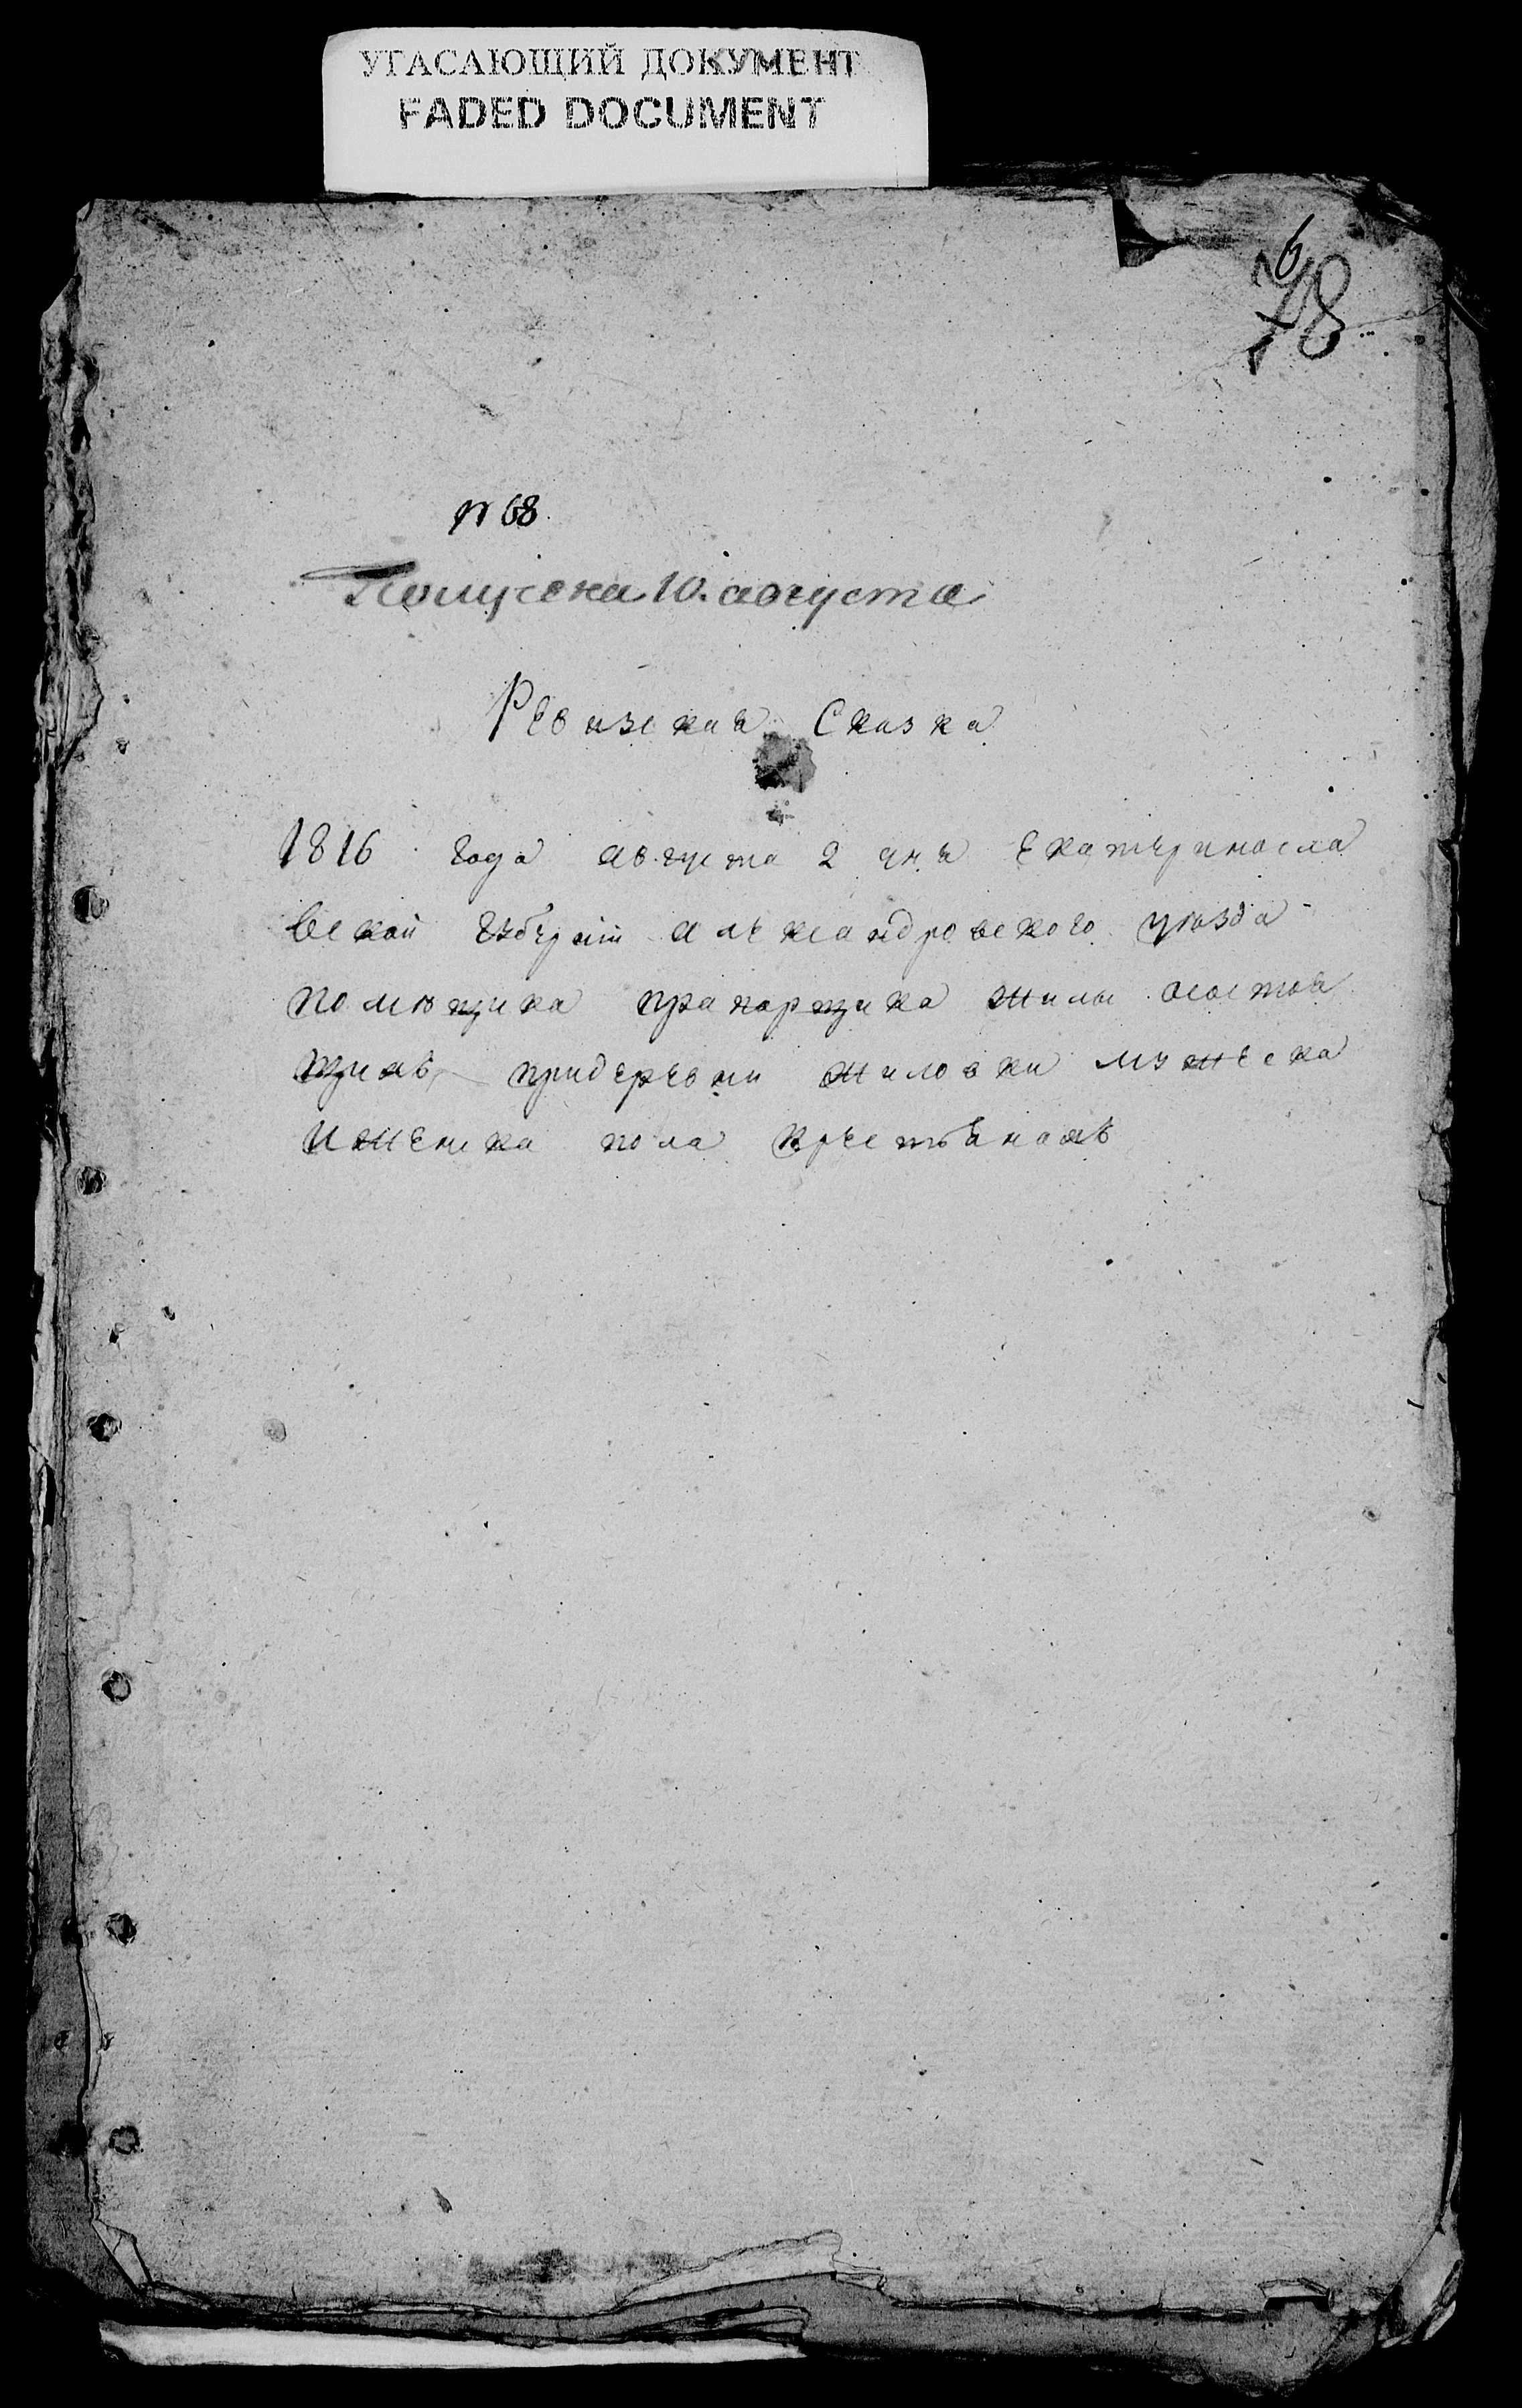 УГАСАЮЩИЙ ДОКУМЕНТ
FADED DOCUMENT
6
78
№ 68.
Получена 10. августа
Ревизская Сказка
1816 года августа 2 дня Екатериносла
вской губерніи александровского уезда
помѣщика прапорщика жилы состоя
щимъ придеревни жиловки мужеска
иженска пола крестьяномъ